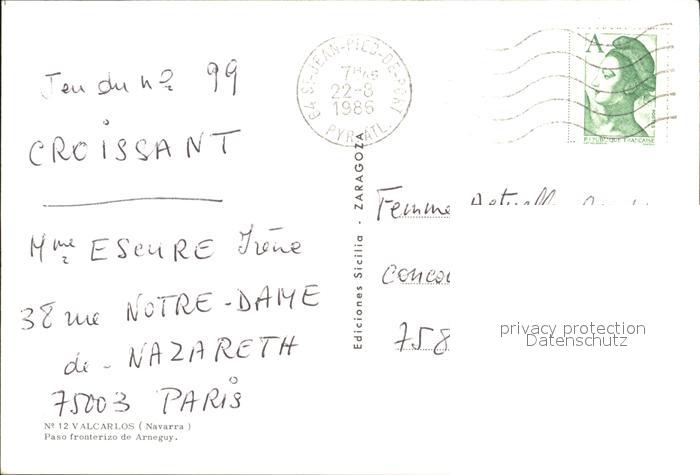 Jeu du nº 99
CROISSANT
Mme ESCURE Irène
38 rue NOTRE-DAME
de - NAZARETH
75003 PARIS
Nº 12 VALCARLOS (Navarra)
Paso fronterizo de Arneguy.
Ediciones Sicilia - ZARAGOZA
64 ST-JEAN-PIED-DE-PORT
7H45
22-8
1986
PYR. ATL.
A
REPUBLIQUE FRANCAISE
Femme Actuelle
conco
758
privacy protection
Datenschutz